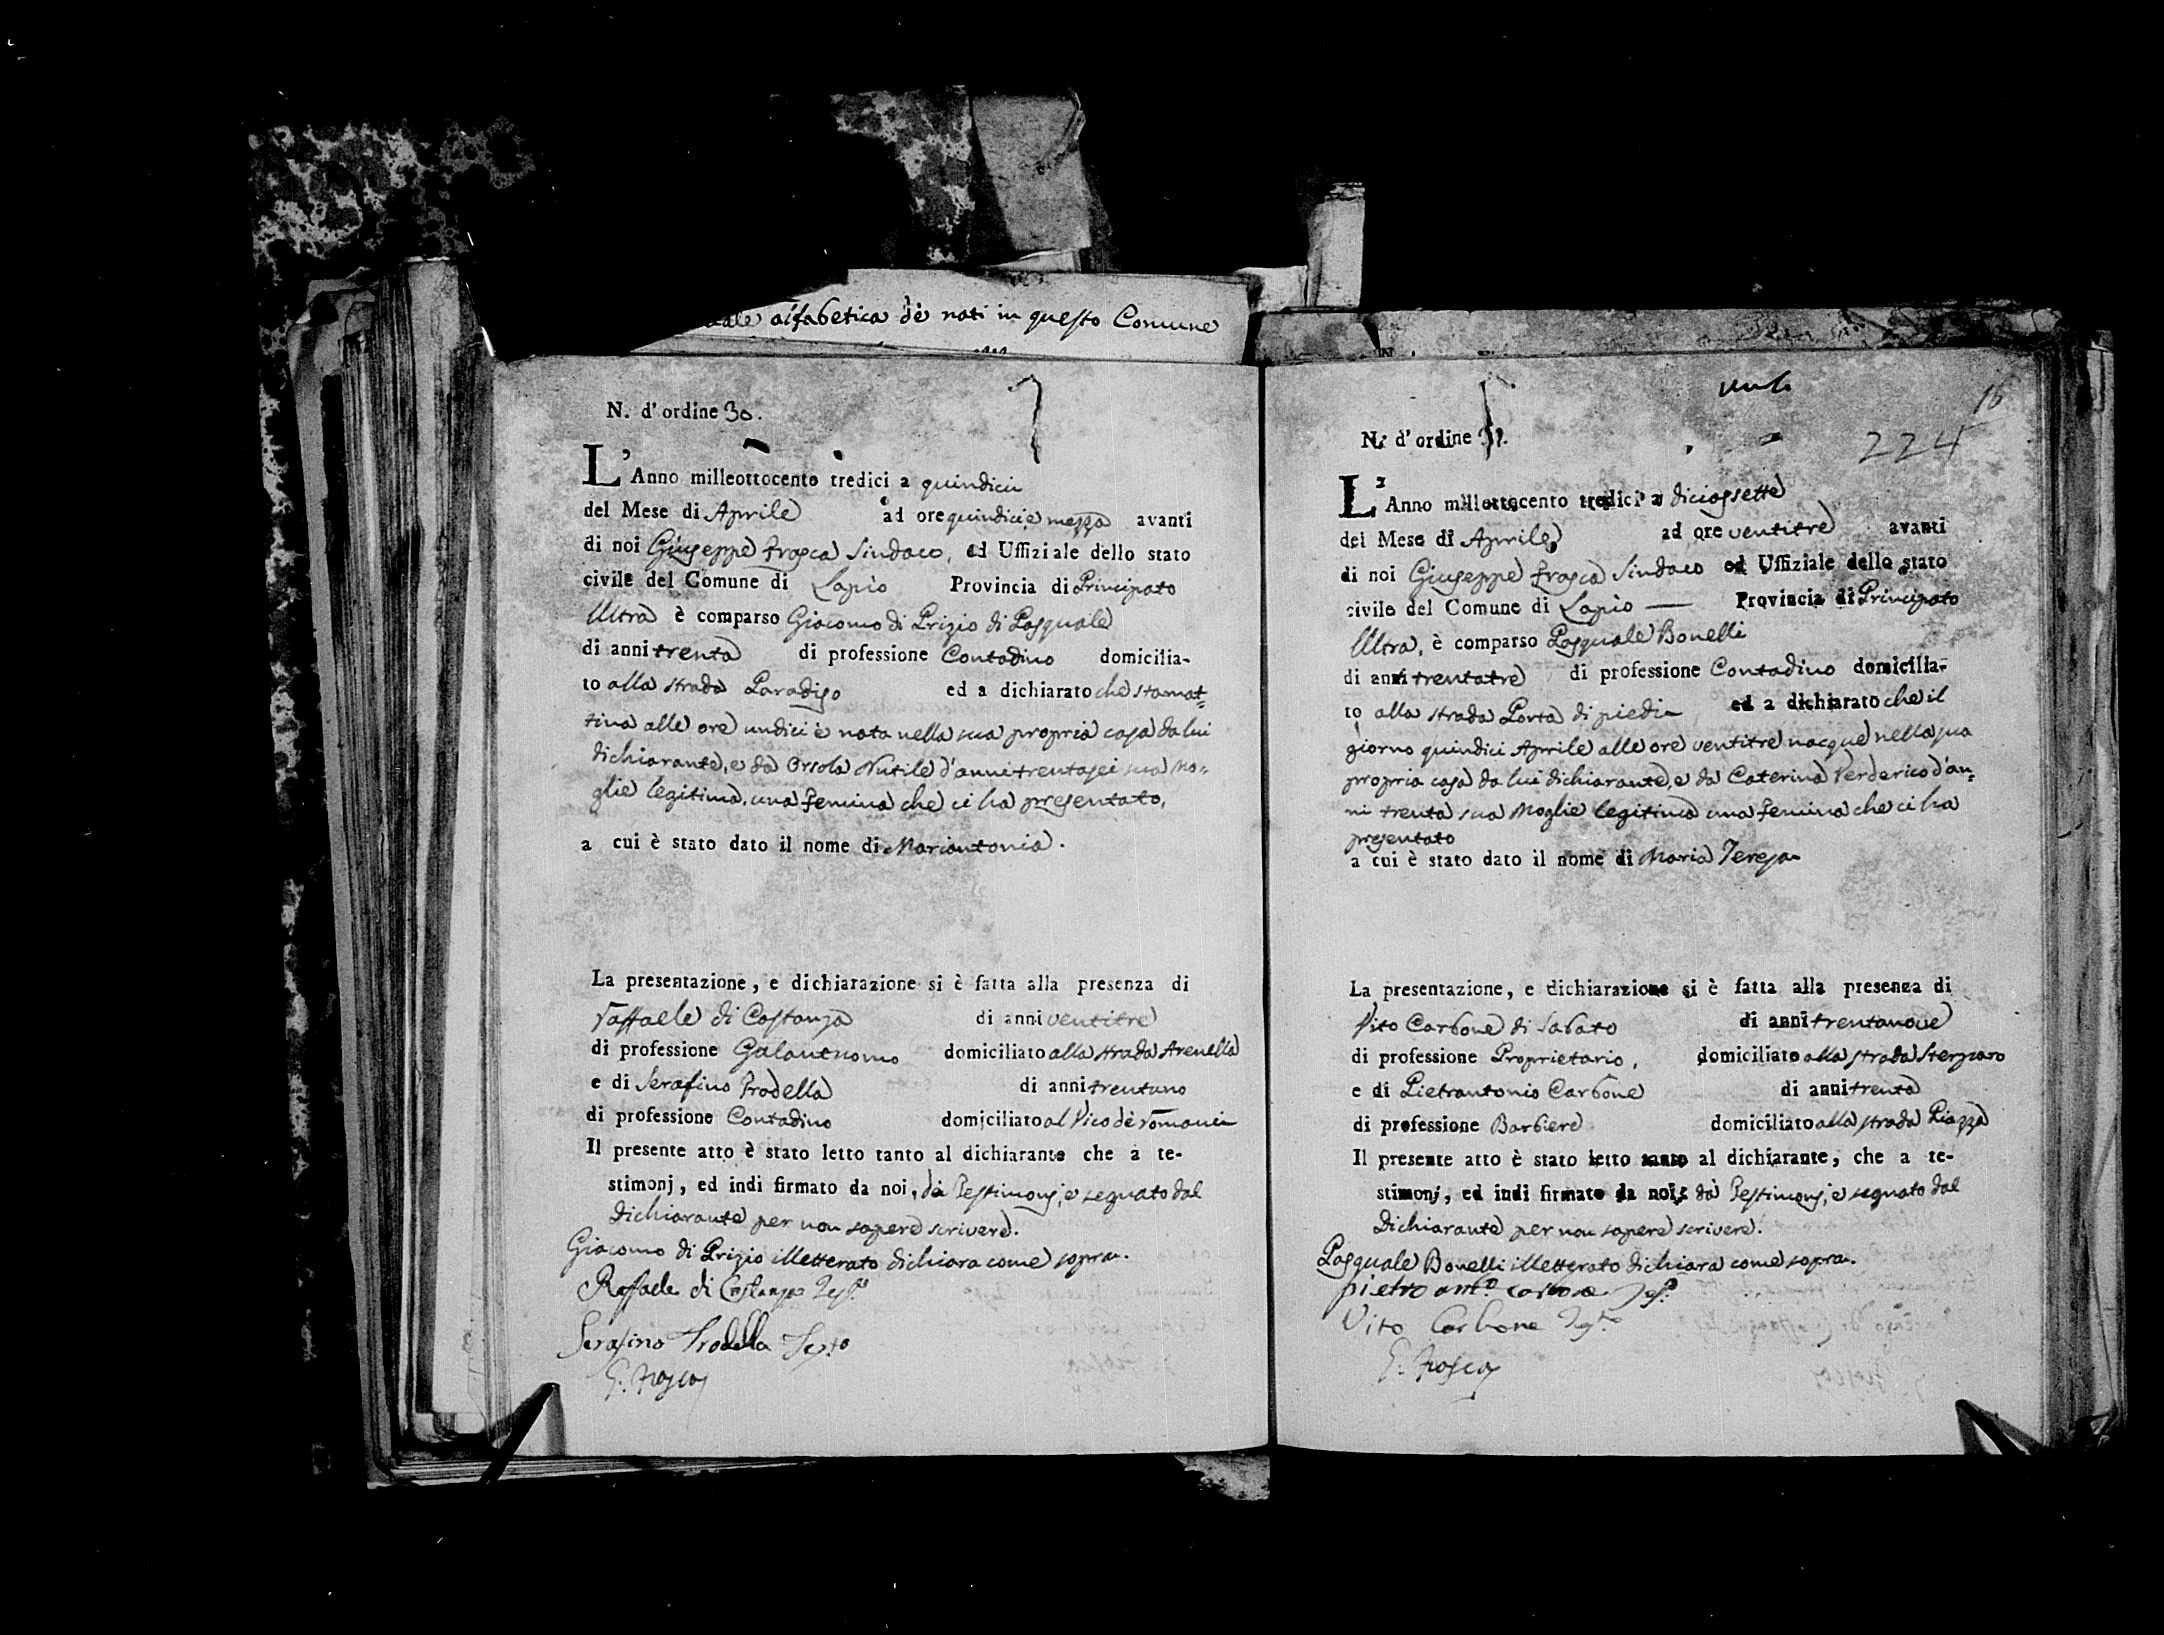 alfabetica dè nati in questo Comune
N. d'ordine 30.
L'Anno milleottocento tredici a quindici
del Mese di Aprile ad ore quindici e mezza avanti
di noi Giuseppe Frasca Sindaco, ed Uffiziale dello stato
civile del Comune di Lapio Provincia di Principato
Ultra è comparso Giacomo di Prizio di Pasquale
di anni trenta di professione Contadino domicilia-
to alla strada Paradiso ed a dichiarato che stamat=
tina alle ore undici è nata nella sua propria casa da lui
dichiarante, e da Orsola Nutile d'anni trentasei sua mo=
glie legitima, una femina che ci ha presentato,
a cui è stato dato il nome di Mariantonia.
La presentazione, e dichiarazione si è fatta alla presenza di
Raffaele di Costanza di anni ventitre
di professione Galantuomo domiciliato alla strada Arenella
e di Serafino Trodella di anni trentuno
di professione Contadino domiciliato al Vico dè Romani
Il presente atto è stato letto tanto al dichiarante che a te-
stimonj, ed indi firmato da noi, dà Testimonj, e segnato dal
dichiarante per non sapere scrivere.
Giacomo di Prizio illetterato dichiara come sopra.
Raffaele di Costanza Test.º
Serafino Trodella Test.to
G. Frasca
16
224
N. d'ordine 31.
L'Anno milleottocento tredici a diciassette
del Mese di Aprile ad ore ventitre avanti
di noi Giuseppe Frasca Sindaco ed Uffiziale dello stato
civile del Comune di Lapio — Provincia di Principato
Ultra, è comparso Pasquale Bonelli
di anni trentatre di professione Contadino domicilia-
to alla strada Porta di piedi ed a dichiarato che il
giorno quindici Aprile alle ore ventitre nacque nella sua
propria casa da lui dichiarante, e da Caterina Verderico d'an=
ni trenta sua Moglie legitima una femina che ci ha
presentato
a cui è stato dato il nome di Maria Teresa
La presentazione, e dichiarazione si è fatta alla presenza di
Vito Carbone di Sabato di anni trentanove
di professione Proprietario, domiciliato alla strada Sterparo
e di Pietrantonio Carbone di anni trenta
di professione Barbiere domiciliato alla strada Piazza
Il presente atto è stato letto tanto al dichiarante, che a te-
stimonj, ed indi firmato da noi, dà Testimonj, e segnato dal
dichiarante per non sapere scrivere.
Pasquale Bonelli illetterato dichiara come sopra.
pietro ant.º carbone Tes.º
Vito Carbone Tes.to
G. Frasca